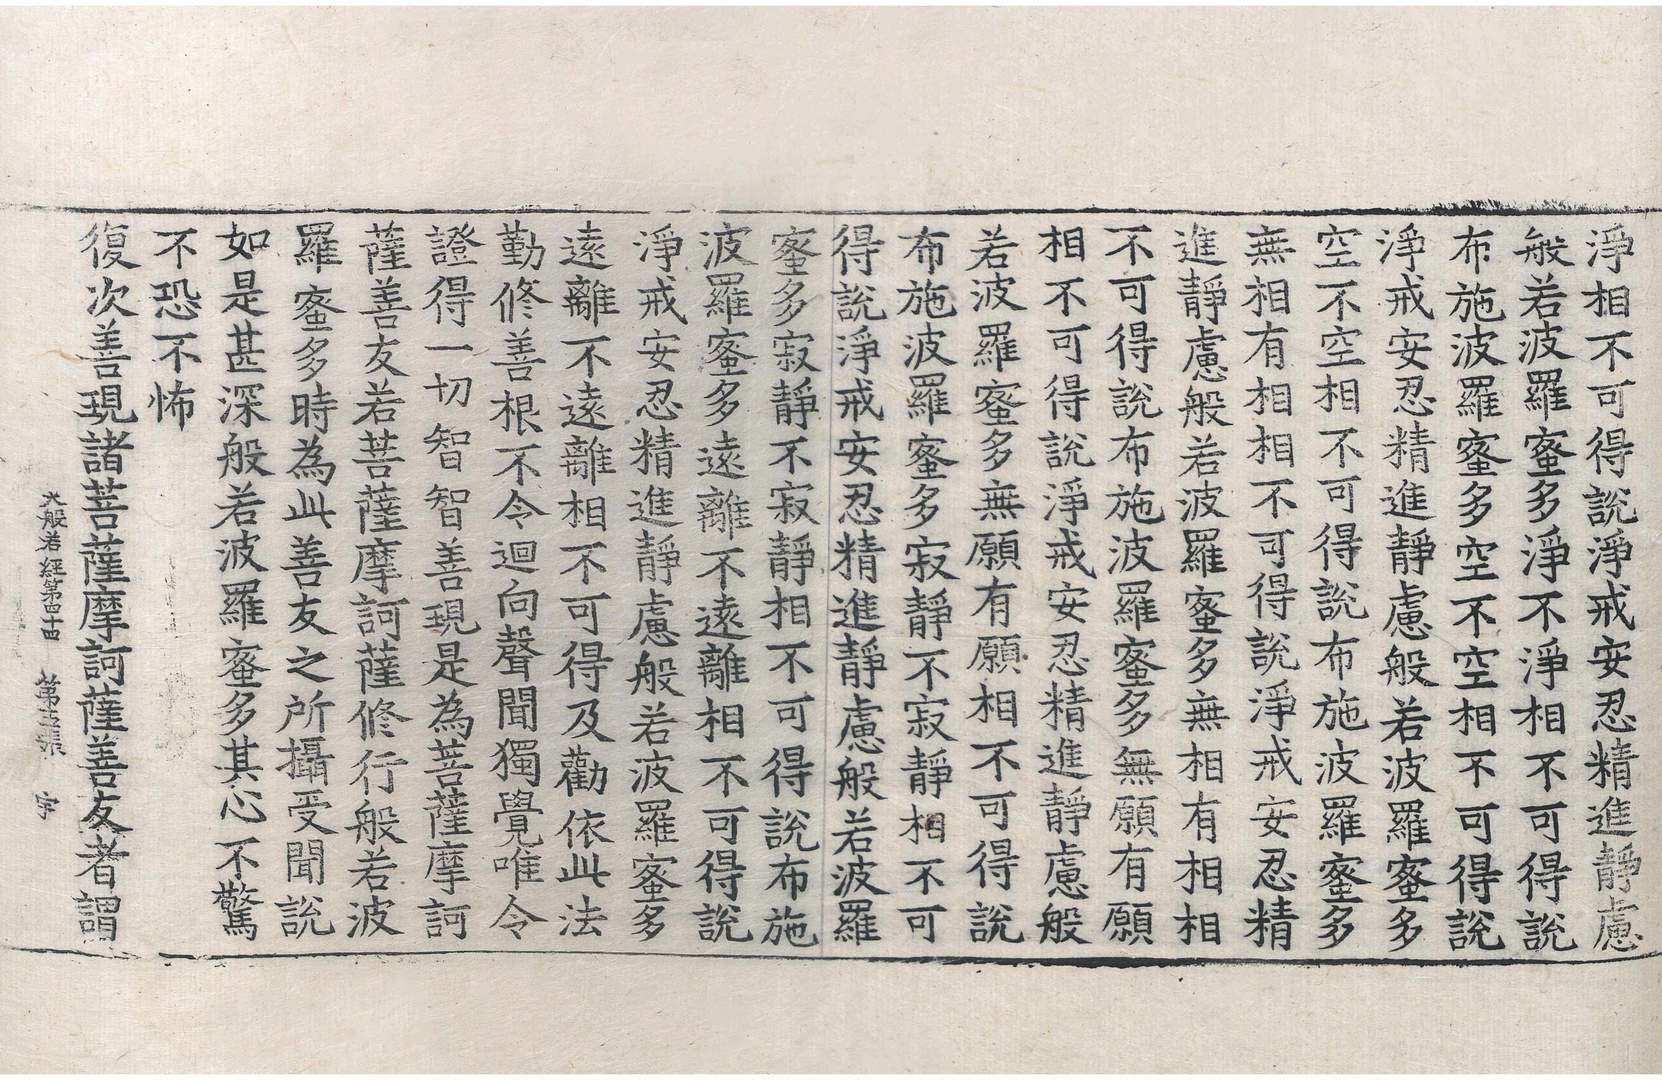 淨相不可得說淨戒安忍精進靜慮
般若波羅蜜多淨不淨相不可得說
布施波羅蜜多空不空相不可得說
淨戒安忍精進靜慮般若波羅蜜多
空不空相不可得說布施波羅蜜多
無相有相相不可得說淨戒安忍精
進靜慮般若波羅蜜多無相有相相
不可得說布施波羅蜜多無願有願
相不可得說淨戒安忍精進靜慮般
若波羅蜜多無願有願相不可得說
布施波羅蜜多寂靜不寂靜相不可
得說淨戒安忍精進靜慮般若波羅
蜜多寂靜不寂靜相不可得說布施
波羅蜜多遠離不遠離相不可得說
淨戒安忍精進靜慮般若波羅蜜多
遠離不遠離相不可得及勸依此法
勤修善根不令迴向聲聞獨覺唯令
證得一切智智善現是為菩薩摩訶
薩善友若菩薩摩訶薩修行般若波
羅蜜多時為此善友之所攝受聞說
如是甚深般若波羅蜜多其心不驚
不恐不怖
復次善現諸菩薩摩訶薩善友者謂
大般若經第四十四 第十五張 宇